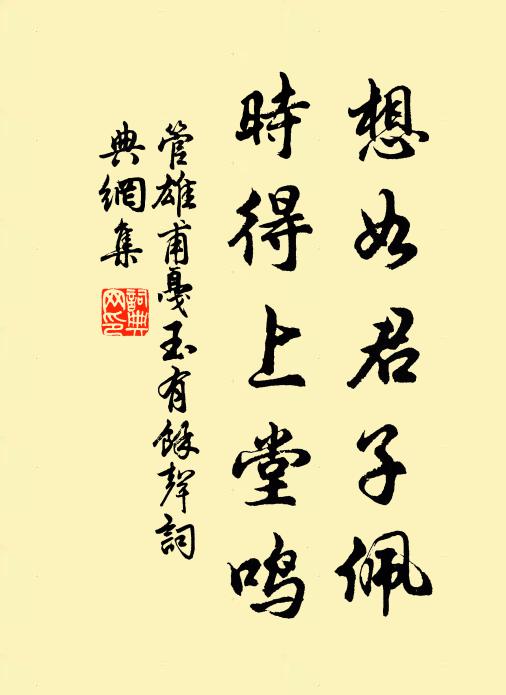 想如君子佩
時得上堂鸣
管雄甫戛玉有餘聲詞
典網集
詞典
网印